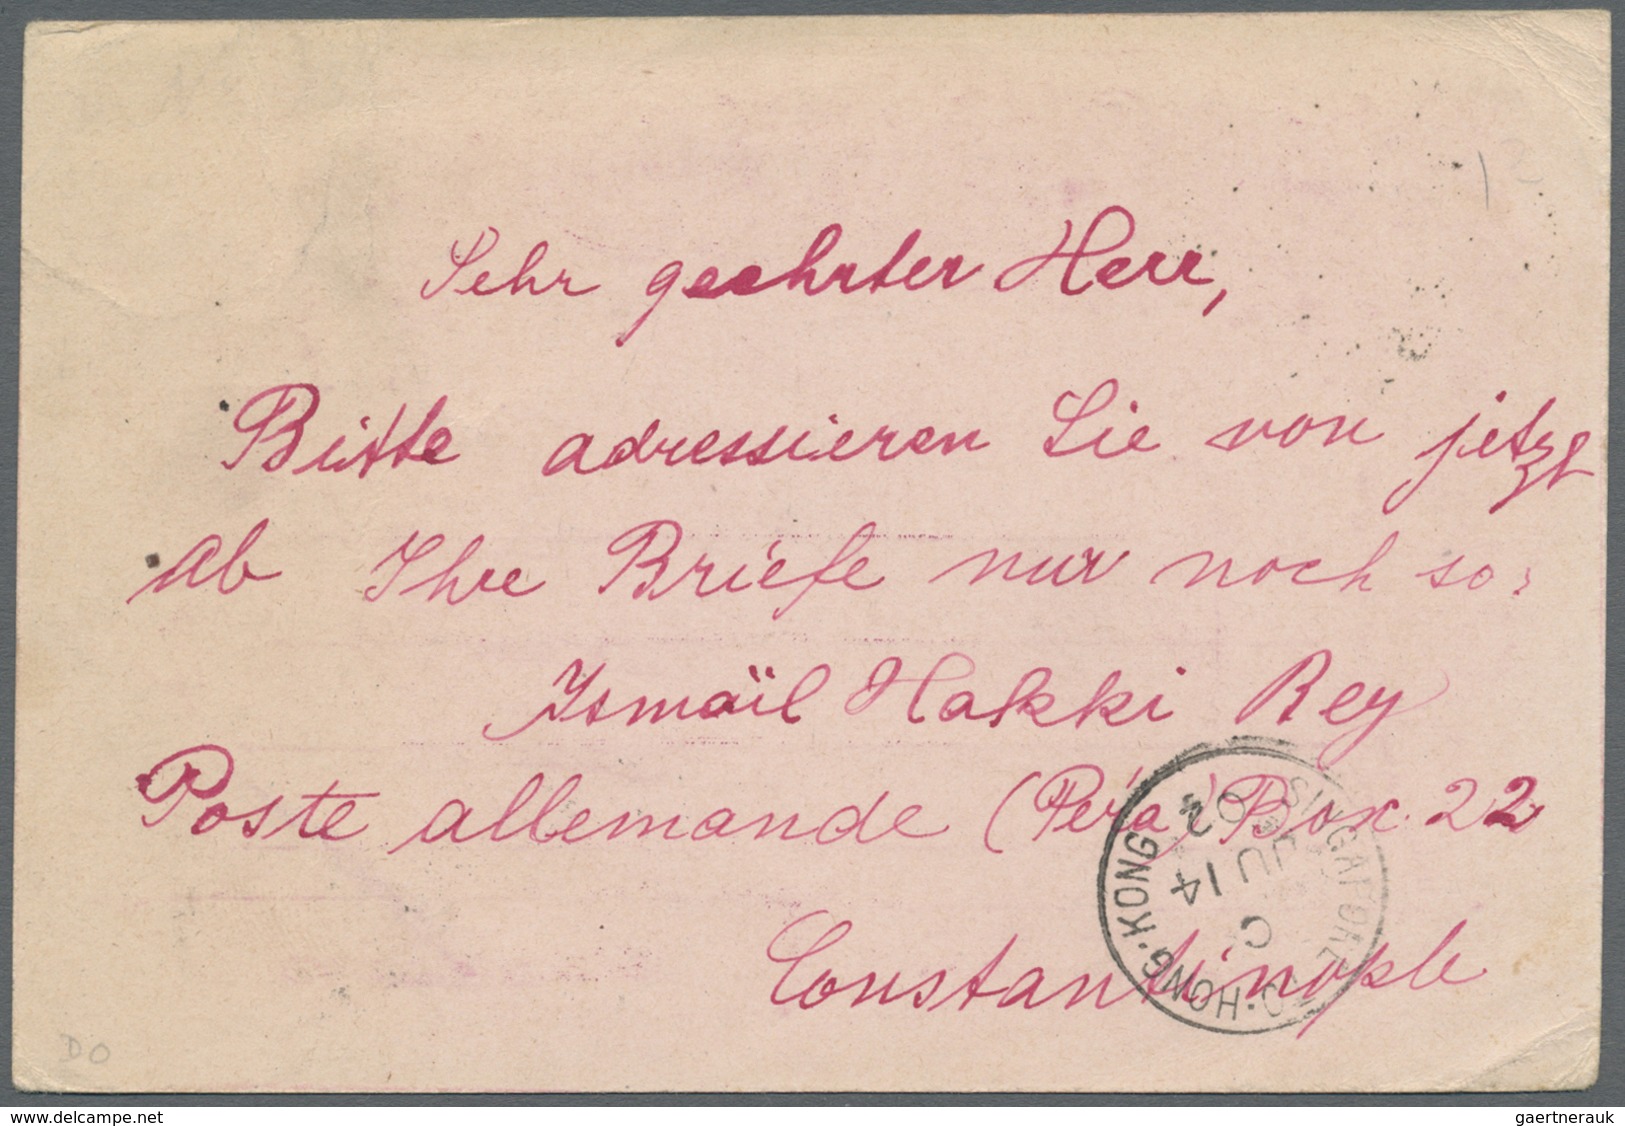 Sehr geehrter Herr,
Bitte adressieren Sie von jetzt
ab Ihre Briefe nur noch so:
Ismaïl Hakki Bey
Poste allemande (Péra) Box. 22
Constantinople
SINGAPORE TO HONG-KONG
C
JU 14
02
DO
delcampe.net
gaertnerauk